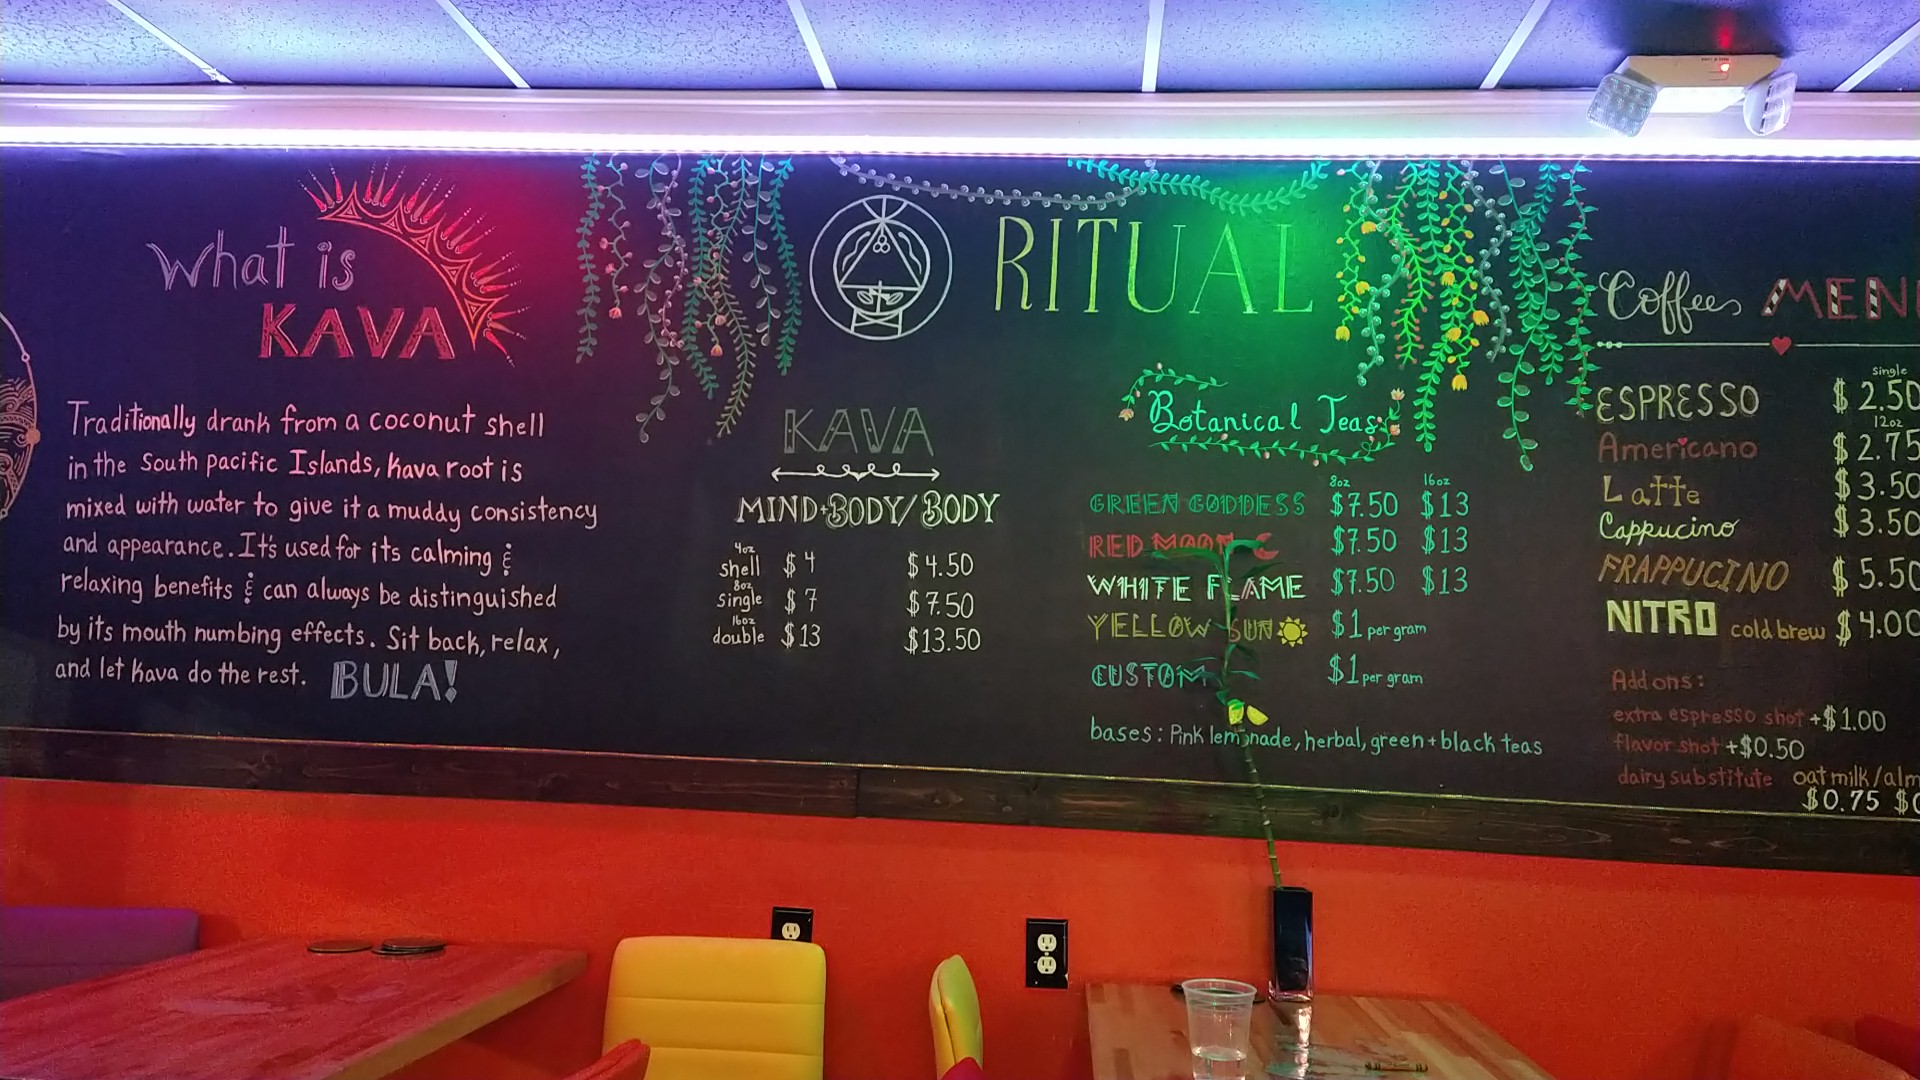 What is
KAVA
Traditionally drank from a coconut shell
in the South pacific Islands, kava root is
mixed with water to give it a muddy consistency
and appearance. It's used for its calming &
relaxing benefits & can always be distinguished
by its mouth numbing effects. Sit back, relax,
and let kava do the rest. BULA!
RITUAL
KAVA
MIND+BODY/BODY
4oz
shell $4 $4.50
8oz
single $7 $7.50
16oz
double $13 $13.50
Botanical Teas
8oz 16oz
GREEN GODDESS $7.50 $13
RED MOON $7.50 $13
WHITE FLAME $7.50 $13
YELLOW SUN $1 per gram
CUSTOM $1 per gram
bases: Pink lemonade, herbal, green + black teas
Coffee MEN
single
ESPRESSO $2.50
12oz
Americano $2.75
Latte $3.50
Cappucino $3.50
FRAPPUCINO $5.50
NITRO cold brew $4.00
Add ons:
extra espresso shot +$1.00
flavor shot +$0.50
dairy substitute oat milk/alm
$0.75 $0